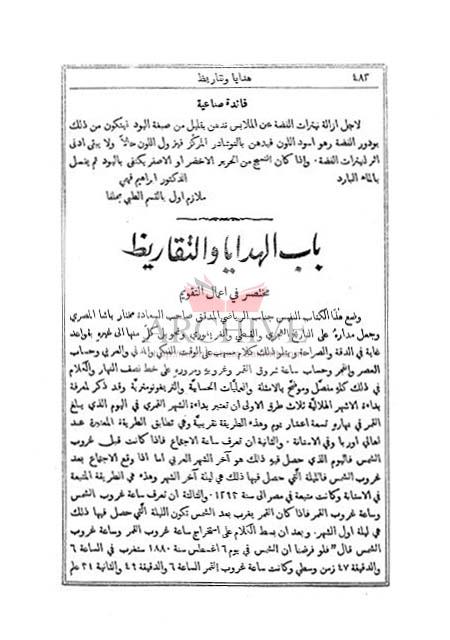 ٤٨٢
هدايا وتقاريظ
فائدة صناعية
لاجل ازالة نيترات الفضة عن الملابس تدهن بقليل من صبغة اليود فيتكون من ذلك
يودور الفضة وهو اسود اللون فيدهن بالنوشادر المركز فيزول اللون حالاً ولا يبقى ادنى
اثر لنيترات الفضة. واذا كان النسيج من الحرير الاخضر او الاصفر يكتفى باليود ثم يغسل
بالماء البارد
الدكتور ابراهيم فهمي
ملازم اول بالقسم الطبي بحلفا
باب الهدايا والتقاريظ
مختصر في اعمال التقويم
وضع هذا الكتاب النفيس جناب الرياضي المدقق صاحب السعادة مختار باشا المصري
وجعل مداره على التاريخ القمري والقبطي والغريغوري وتحويل كل منها الى غيره بقواعد
غاية في الدقة والصراحة ويتلو ذلك كلام مسهب على الوقت الفلكي والمدني والعربي وحساب
العصر والفجر وحساب ساعة شروق القمر وغروبه ومروره على خط نصف النهار والكلام
في ذلك كله مفصل وموضح بالامثلة والعمليات الحسابية والتريغونومترية وقد ذكر لمعرفة
بداءة الاشهر الهلالية ثلاث طرق الاولى ان تعتبر بداءة الشهر القمري في اليوم الذي يبلغ
القمر في نهاره تسعة اعشار يوم وهذه الطريقة تقريبية وهي تطابق الطريقة المعتمدة عند
اهالي اوربا وفي الاستانة. والثانية ان تعرف ساعة الاجتماع فاذا كانت قبل غروب
الشمس فاليوم الذي حصل فيه ذلك هو آخر الشهر العربي اما اذا وقع الاجتماع بعد
غروب الشمس فالليلة التي حصل فيها ذلك هي ليلة آخر الشهر وهذه هي الطريقة المتبعة
في الاستانة وكانت متبعة في مصر الى سنة ١٢٩٢. والثالثة ان تعرف ساعة غروب الشمس
وساعة غروب القمر فاذا كان القمر يغرب بعد الشمس تكون الليلة التي حصل فيها ذلك
هي ليلة اول الشهر. وبعد ان بسط الكلام على استخراج ساعة غروب القمر وساعة غروب
الشمس قال "فلو فرضنا ان الشمس في يوم ٦ اغسطس سنة ١٨٨٠ ستغرب في الساعة ٦
والدقيقة ٤٧ زمن وسطي وكانت ساعة غروب القمر الساعة ٦ والدقيقة ٤٩ والثانية ٣١ علم
ARCHIVE